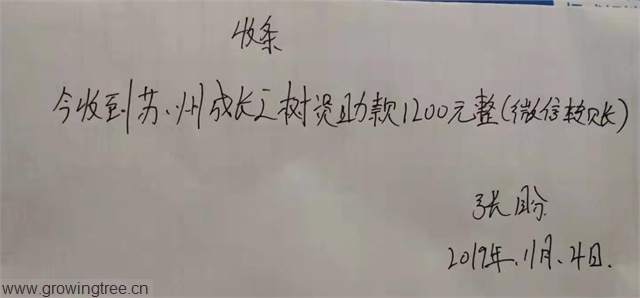 收条
今收到苏州成长之树资助款1200元整(微信转账)
张盼
2019年.11月.4日.
www.growingtree.cn